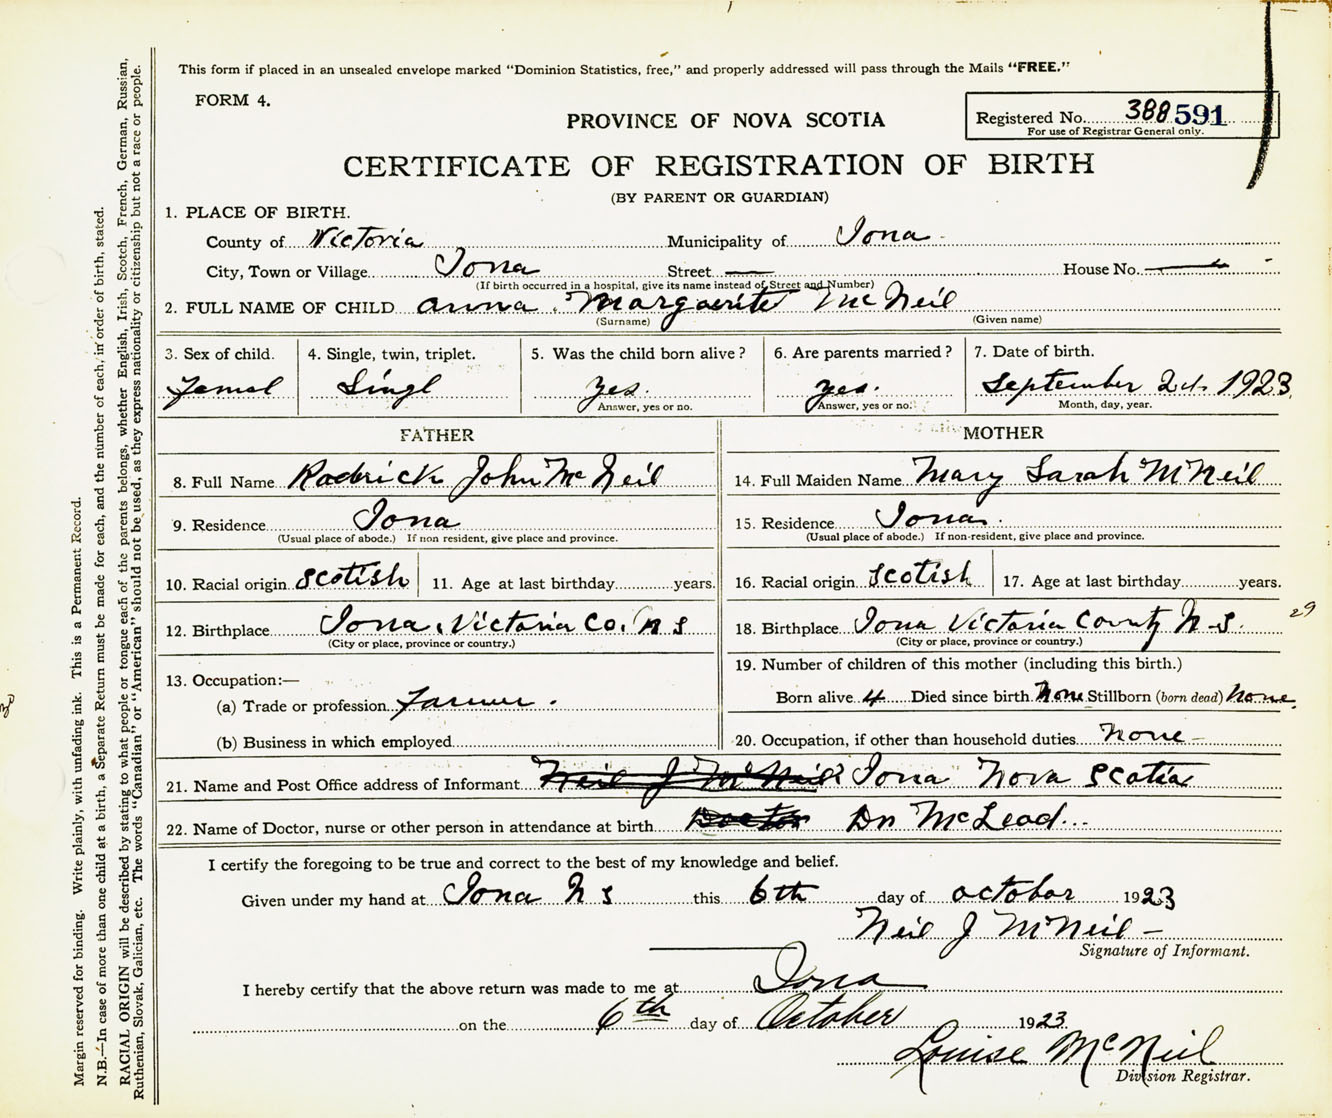 This form if placed in an unsealed envelope marked “Dominion Statistics, free,” and properly addressed will pass through the Mails “FREE.”
FORM 4.
PROVINCE OF NOVA SCOTIA
Registered No. 388 591
For use of Registrar General only.
CERTIFICATE OF REGISTRATION OF BIRTH
(BY PARENT OR GUARDIAN)
1. PLACE OF BIRTH.
County of Victoria Municipality of Iona
City, Town or Village Iona Street — House No. —
(If birth occurred in a hospital, give its name instead of Street and Number)
2. FULL NAME OF CHILD anna Margaerite McNeil
(Surname) (Given name)
3. Sex of child. 4. Single, twin, triplet. 5. Was the child born alive? 6. Are parents married? 7. Date of birth.
Femal Singl yes. yes. September 1923
Answer, yes or no. Answer, yes or no. Month, day, year.
FATHER
8. Full Name Rodrick John McNeil
9. Residence Iona
(Usual place of abode.) If non resident, give place and province.
10. Racial origin Scotish 11. Age at last birthday years.
12. Birthplace Iona, Victoria Co. N S
(City or place, province or country.)
13. Occupation:—
(a) Trade or profession Farmer.
(b) Business in which employed
MOTHER
14. Full Maiden Name Mary Sarah McNeil
15. Residence Iona.
(Usual place of abode.) If non-resident, give place and province.
16. Racial origin Scotish 17. Age at last birthday years.
18. Birthplace Iona Victoria County N-S. 29
(City or place, province or country.)
19. Number of children of this mother (including this birth.)
Born alive 4 Died since birth None Stillborn (born dead) None.
20. Occupation, if other than household duties None —
21. Name and Post Office address of Informant Neil J McNeil Iona Nova Scotia
22. Name of Doctor, nurse or other person in attendance at birth Doctor Dr McLeod...
I certify the foregoing to be true and correct to the best of my knowledge and belief.
Given under my hand at Iona N S this 6th day of october 1923
Neil J McNeil —
Signature of Informant.
I hereby certify that the above return was made to me at Iona
on the 6th day of October 1923
Louise McNeil
Division Registrar.
Margin reserved for binding. Write plainly, with unfading ink. This is a Permanent Record.
N.B.—In case of more than one child at a birth, a Separate Return must be made for each, and the number of each, in order of birth, stated.
RACIAL ORIGIN will be described by stating to what people or tongue each of the parents belongs, whether English, Irish, Scotch, French, German, Russian,
Ruthenian, Slovak, Galician, etc. The words “Canadian” or “American” should not be used, as they express nationality or citizenship but not a race or people.